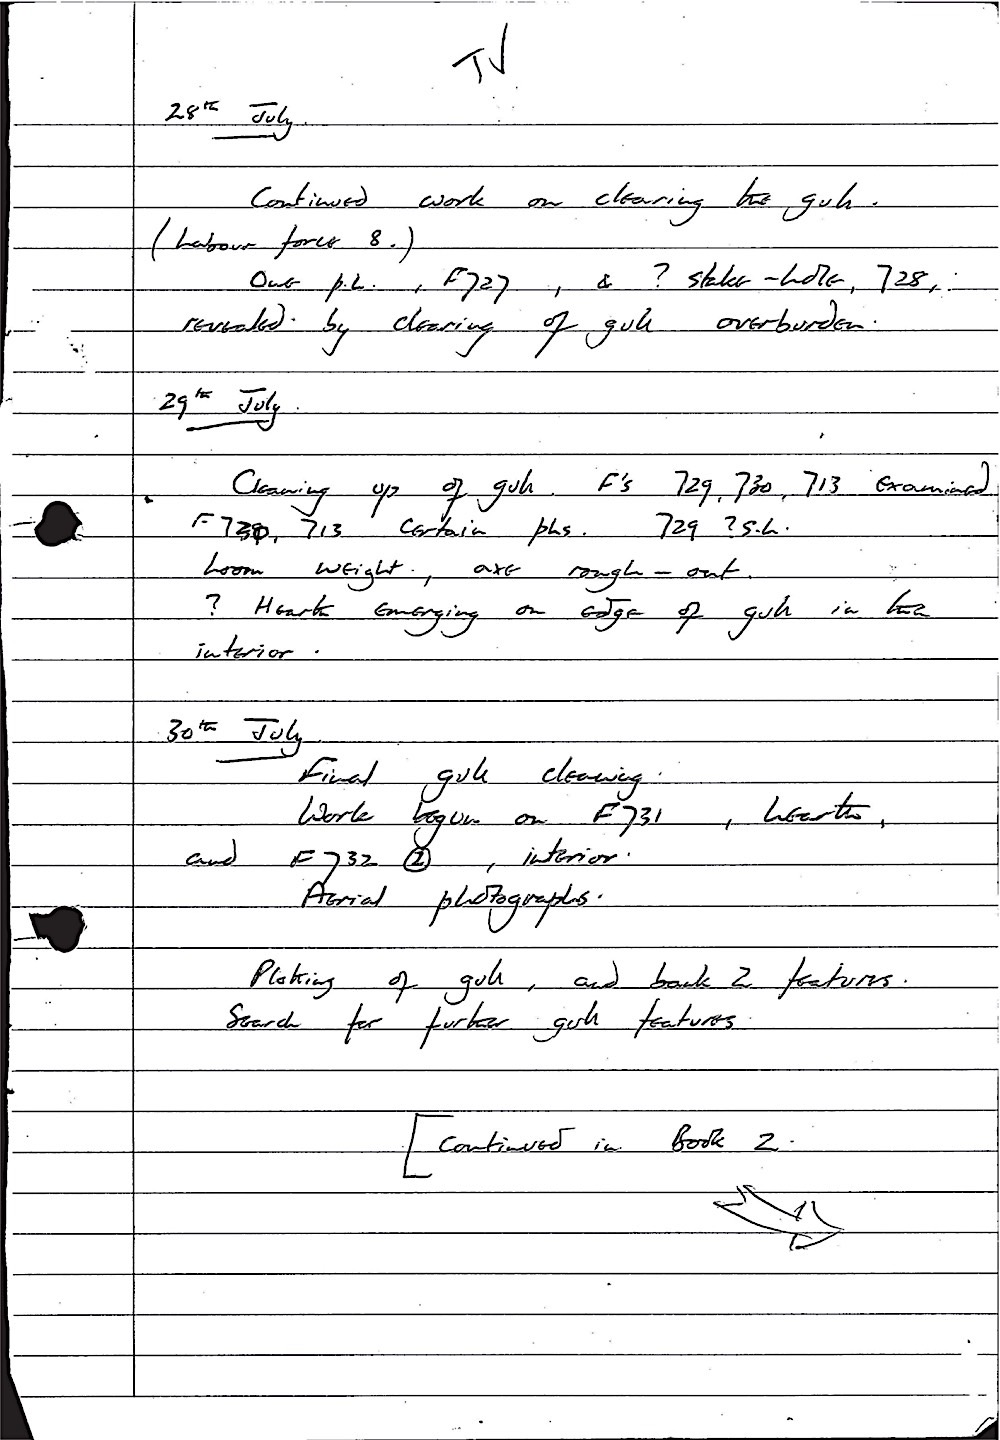 TV
28th July.
Continued work on clearing the guh.
(Labour force 8.)
One p.h. , F727 , & ? stake-hole, 728,
revealed by clearing of guh overburden.
29th July.
Cleaning up of guh. F's 729, 730, 713 examined
F730, 713 certain phs. 729 ? s.h.
Loom weight., axe rough-out.
? Hearth emerging on edge of guh in the
interior.
30th July
Final guh cleaning.
Work begun on F731 , hearth,
and F732 , interior.
Aerial photographs.
Plotting of guh, and bank 2 features.
Search for further guh features
[Continued in Book 2.